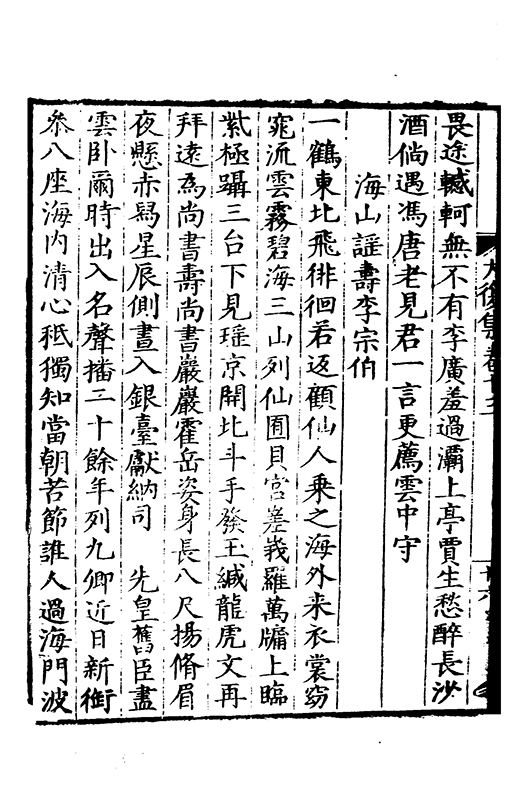 畏途轗軻無不有李廣羞過灞上亭賈生愁醉長沙
酒倘遇馮唐老見君一言更薦雲中守
海山謡壽李宗伯
一鶴東北飛徘徊若返顧仙人乗之海外来衣裳窈
窕流雲霧碧海三山列仙圃貝宫差峩羅萬牖上臨
紫極躡三台下見瑶京開北斗手發玉緘龍虎文再
拜遠爲尚書壽尚書巖巖霍岳姿身長八尺揚脩眉
夜懸赤舄星辰側晝入銀臺獻納司　先皇舊臣盡
雲卧爾時出入名聲播二十餘年列九卿近日新銜
叅八座海内清心秪獨知當朝苦節誰人過海門波
大復集卷十二